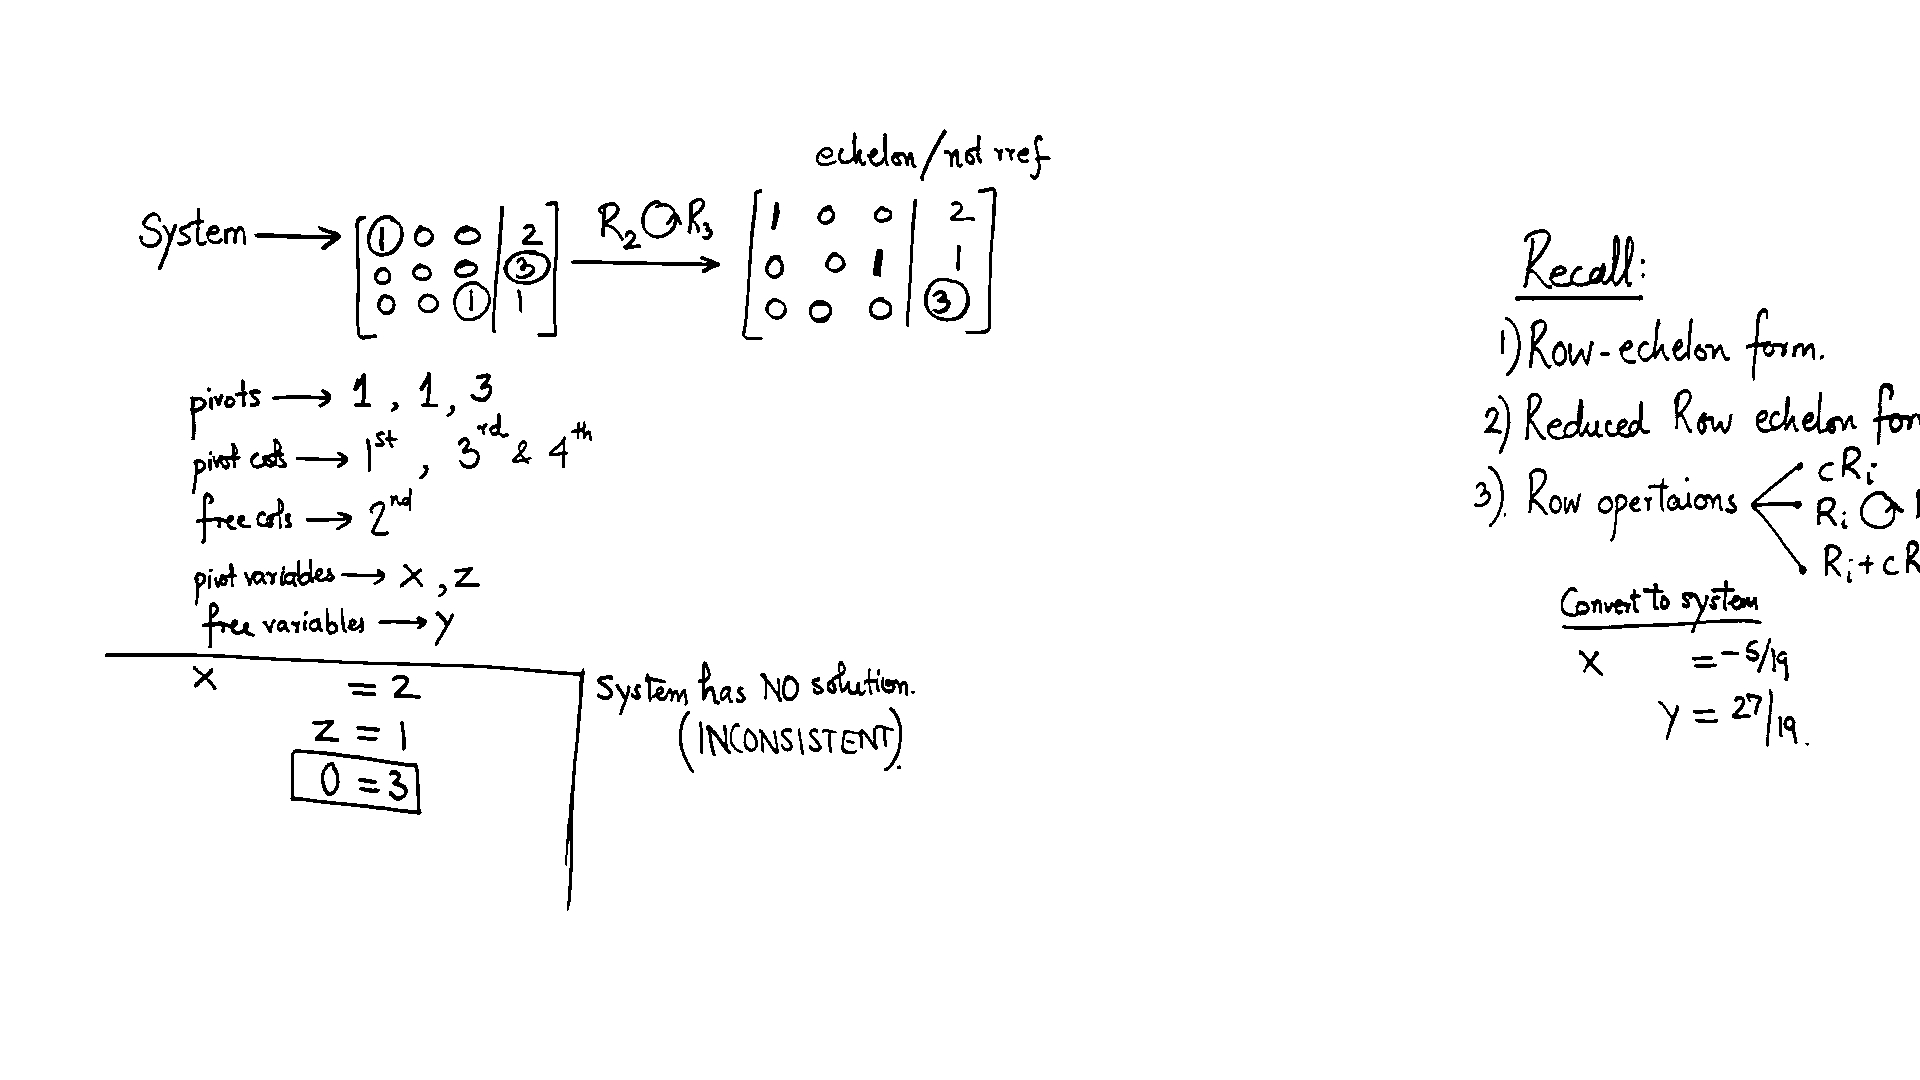 echelon/not rref
System → [1 0 0 | 2] R₂ ↻ R₃ → [1 0 0 | 2]
[0 0 0 | 3] [0 0 1 | 1]
[0 0 1 | 1] [0 0 0 | 3]
pivots → 1, 1, 3
pivot cols → 1st, 3rd & 4th
free cols → 2nd
pivot variables → x, z
free variables → y
x = 2
z = 1
0 = 3
System has NO solution.
(INCONSISTENT).
Recall:
1) Row-echelon form.
2) Reduced Row echelon for
3). Row opertaions
cRᵢ
Rᵢ ↻
Rᵢ + cR
Convert to system
x = -5/19
y = 27/19.